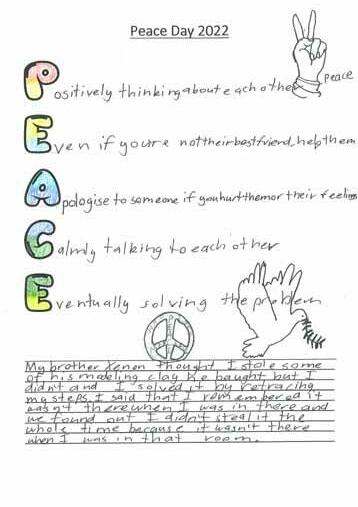 Peace Day 2022
peace
Positively thinking about each other
Even if youre not their best friend, help them
Apologise to someone if you hurt them or their feelings
Calmly talking to each other
Eventually solving the problem
My brother Xenon thought I stole some
of his modeling clay he baught but I
didn't and I solved it by retracing
my steps. I said that I remembered it
wasn't there when I was in there and
we found out I didn't steal it the
whole time because it wasn't there
when I was in that room.